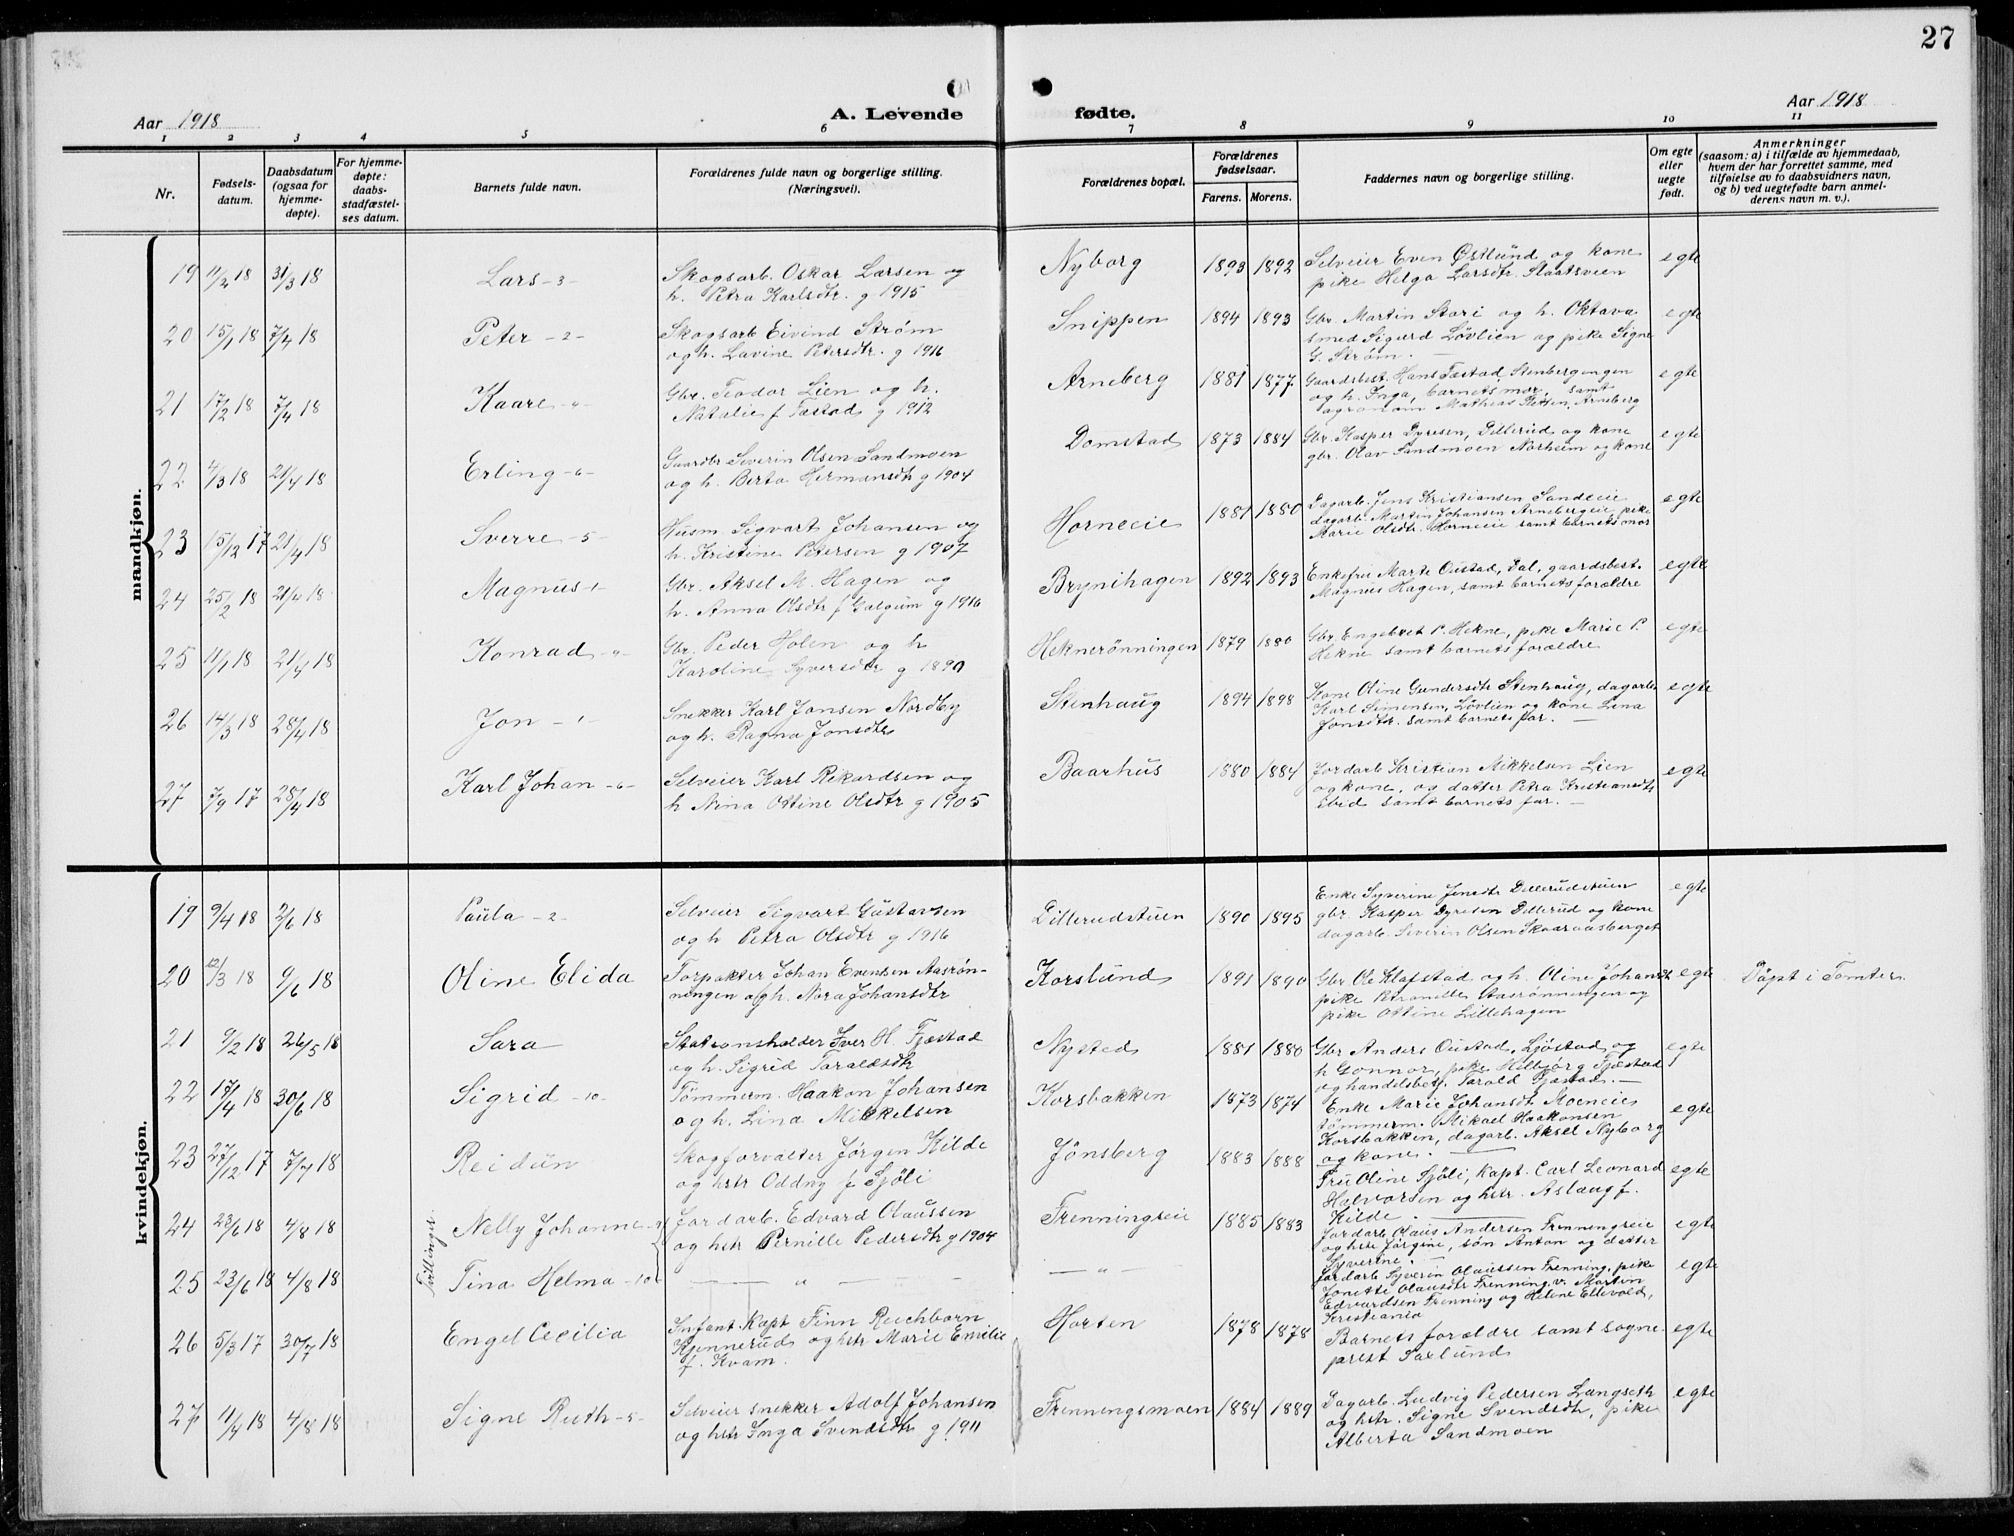 27
Aar 1918
A. Levende
fødte.
Aar 1918
1 2 3 4 5 6 7 8 9 10 11
Nr.
Fødsels-
datum.
Daabsdatum
(ogsaa for
hjemme-
døpte).
For hjemme-
døpte:
daabs-
stadfæstel-
ses datum.
Barnets fulde navn.
Forældrenes fulde navn og borgerlige stilling.
(Næringsvei).
Forældrenes bopæl.
Forældrenes
fødselsaar.
Farens. Morens.
Faddernes navn og borgerlige stilling.
Om egte
eller
uegte
født.
Anmerkninger
(saasom: a) i tilfælde av hjemmedaab,
hvem der har forrettet samme, med
tilføielse av to daabsvidners navn,
og b) ved uegtefødte barn anmel-
derens navn m. v.).
mandkjøn.
19 11/2 18 31/3 18 Lars -3-
Skogsarb. Oskar Larsen og
h. Petra Karlsdtr. g 1915
Nyborg 1893 1892
Selveier Even Østlund og kone
pike Helga Larsdtr. Staatsveen
egte
20 15/1 18 7/4 18 Peter -2-
Skogsarb Eivind Strøm
og h. Lavine Petersdtr. g 1916
Snippen 1894 1893
Gbr. Martin Stari og h. Oktava
smed Sigurd Løvlien og pike Signe
G. Strøm. —
egte
21 17/2 18 7/4 18 Kaare -"-
Gbr. Teodor Lien og h.
Natalie f Tæstad g 1912
Arneberg 1881 1877
Gaardsbest. Hans Tæstad, Stenbergengen
og h. Inga, barnets mor, samt
agronom Mathias Arneberg
egte
22 4/3 18 21/4 18 Erling -6-
Gaardbr Severin Olsen Sandmoen
og h. Berta Hermansdtr g 1904
Domstad 1873 1884
Gbr. Kasper Dyresen, Dillerud og kone
gbr. Olav Sandmoen Norheim og kone
egte
23 15/12 17 21/4 18 Sverre -5-
Husm. Sigvart Johansen og
h. Kristine Petersen g 1907
Horneeie 1881 1880
Dagarb. Jens Kristiansen Sandeeie
dagarb. Martin Johansen Arnebergeie pike
Marie Olsdtr. Horneeie samt barnets mor
egte
24 25/2 18 21/4 18 Magnus -1-
Gbr. Aksel M. Hagen og
h. Anna Olsdtr f Galgum g 1916
Brynihagen 1892 1893
Enkefru Marte Oustad, Dal, gaardsbest.
Magnus Hagen, samt barnets forældre
egte
25 11/1 18 21/4 18 Konrad -"-
Gbr. Peder Holen og h
Karoline Syversdtr g 1890
Heknerønningen 1879 1880
Gbr. Engebret P. Hekne, pike Marie P.
Hekne samt barnets forældre
egte
26 14/3 18 28/4 18 Jon -1-
Snekker Karl Jonsen Nordby
og h. Ragna Jonsdtr
Stenhaug 1894 1898
Kone Oline Gundersdtr Stenhaug, dagarb.
Karl Simensen, Løvlien og kone Lina
Jonsdtr. samt barnets far. —
egte
27 7/9 17 28/4 18 Karl Johan -6-
Selveier Karl Rikardsen og
h Nina Ottine Olsdtr g 1905
Baarhus 1880 1884
Jordarb Kristian Mikkelsen Lien
og kone, og datter Petra Kristiansdtr
ibid samt barnets far. —
egte
kvindekjøn.
19 9/4 18 2/6 18 Paula -2-
Selveier Sigvart Gustavsen
og h Petra Olsdtr g 1916
Dillerudstuen 1890 1895
Enke Syverine Jensdtr Dillerudstuen
gbr. Kasper Dyresen Dillerud og kone
dagarb. Severin Olsen Skaaraasberget
egte
20 12/3 18 9/6 18 Oline Elida
Forpakter Johan Evensen Aasrøn-
ningen og h. Nora Johansdtr
Korslund 1891 1890
Gbr Ole Klafstad og h. Oline Johansdtr
pike Petronille Aasrønningen og
pike Ottine Lillehagen
egte
Døpt i Tomter
21 9/2 18 26/5 18 Sara
Stationsholder Iver H. Fjæstad
og h. Sigrid Taraldsdtr
Nysted 1881 1880
Gbr Anders Oustad, Ljøstad og
h Gonnor, pike Helbjørg Fjæstad
og handelsbetj. Tarald Fjæstad. —
egte
22 17/4 18 30/6 18 Sigrid -10-
Tømmerm. Haakon Johansen
og h. Lina Mikkelsen
Korsbakken 1873 1874
Enke Marie Johansdtr Moeneie
tømmerm. Mikael Haakonsen
Korsbakken, dagarb. Aksel Nyborg
og kone. —
egte
23 27/12 17 7/7 18 Reidun
Skogforvalter Jørgen Kilde
og hstr Oddny f Sjøli
Jønsberg 1883 1888
Fru Oline Sjøli, kapt. Carl Leonard
Halvorsen og hstr. Aslaug f.
Kilde. —
egte
Tvillinger.
24 23/6 18 4/8 18 Nelly Johanne -9-
Jordarb. Edvard Olaussen
og hstr Pernille Pedersdtr g 1904
Frenningseie 1885 1883
Jordarb Olaus Andersen Frenningseie
og hstr Jørgine, søn Anton og datter
Syverine.
egte
25 23/6 18 4/8 18 Tina Helma -10-
— " —
— " —
Jordarb Syverin Olaussen Frenning, pike
Jonette Olausdtr Frenning v. Martin
Edvardsen Frenning og Helene Ellevold,
Kristiania
egte
26 5/3 17 30/7 18 Engel Cecilia
Infant. Kapt Finn Reichborn
Kjennerud og hstr Marie Emilie
f. Kvam.
Horten 1878 1878
Barnets forældre samt sogne-
prest Saxlund
egte
27 11/4 18 4/8 18 Signe Ruth -5-
Selveier snekker Adolf Johansen
og hstr Inga Svendsdtr g 1911
Frenningsmoen 1884 1889
Dagarb. Ludvig Pedersen Langseth
og hstr. Signe Svendsdtr, pike
Alberta Sandmoen
egte